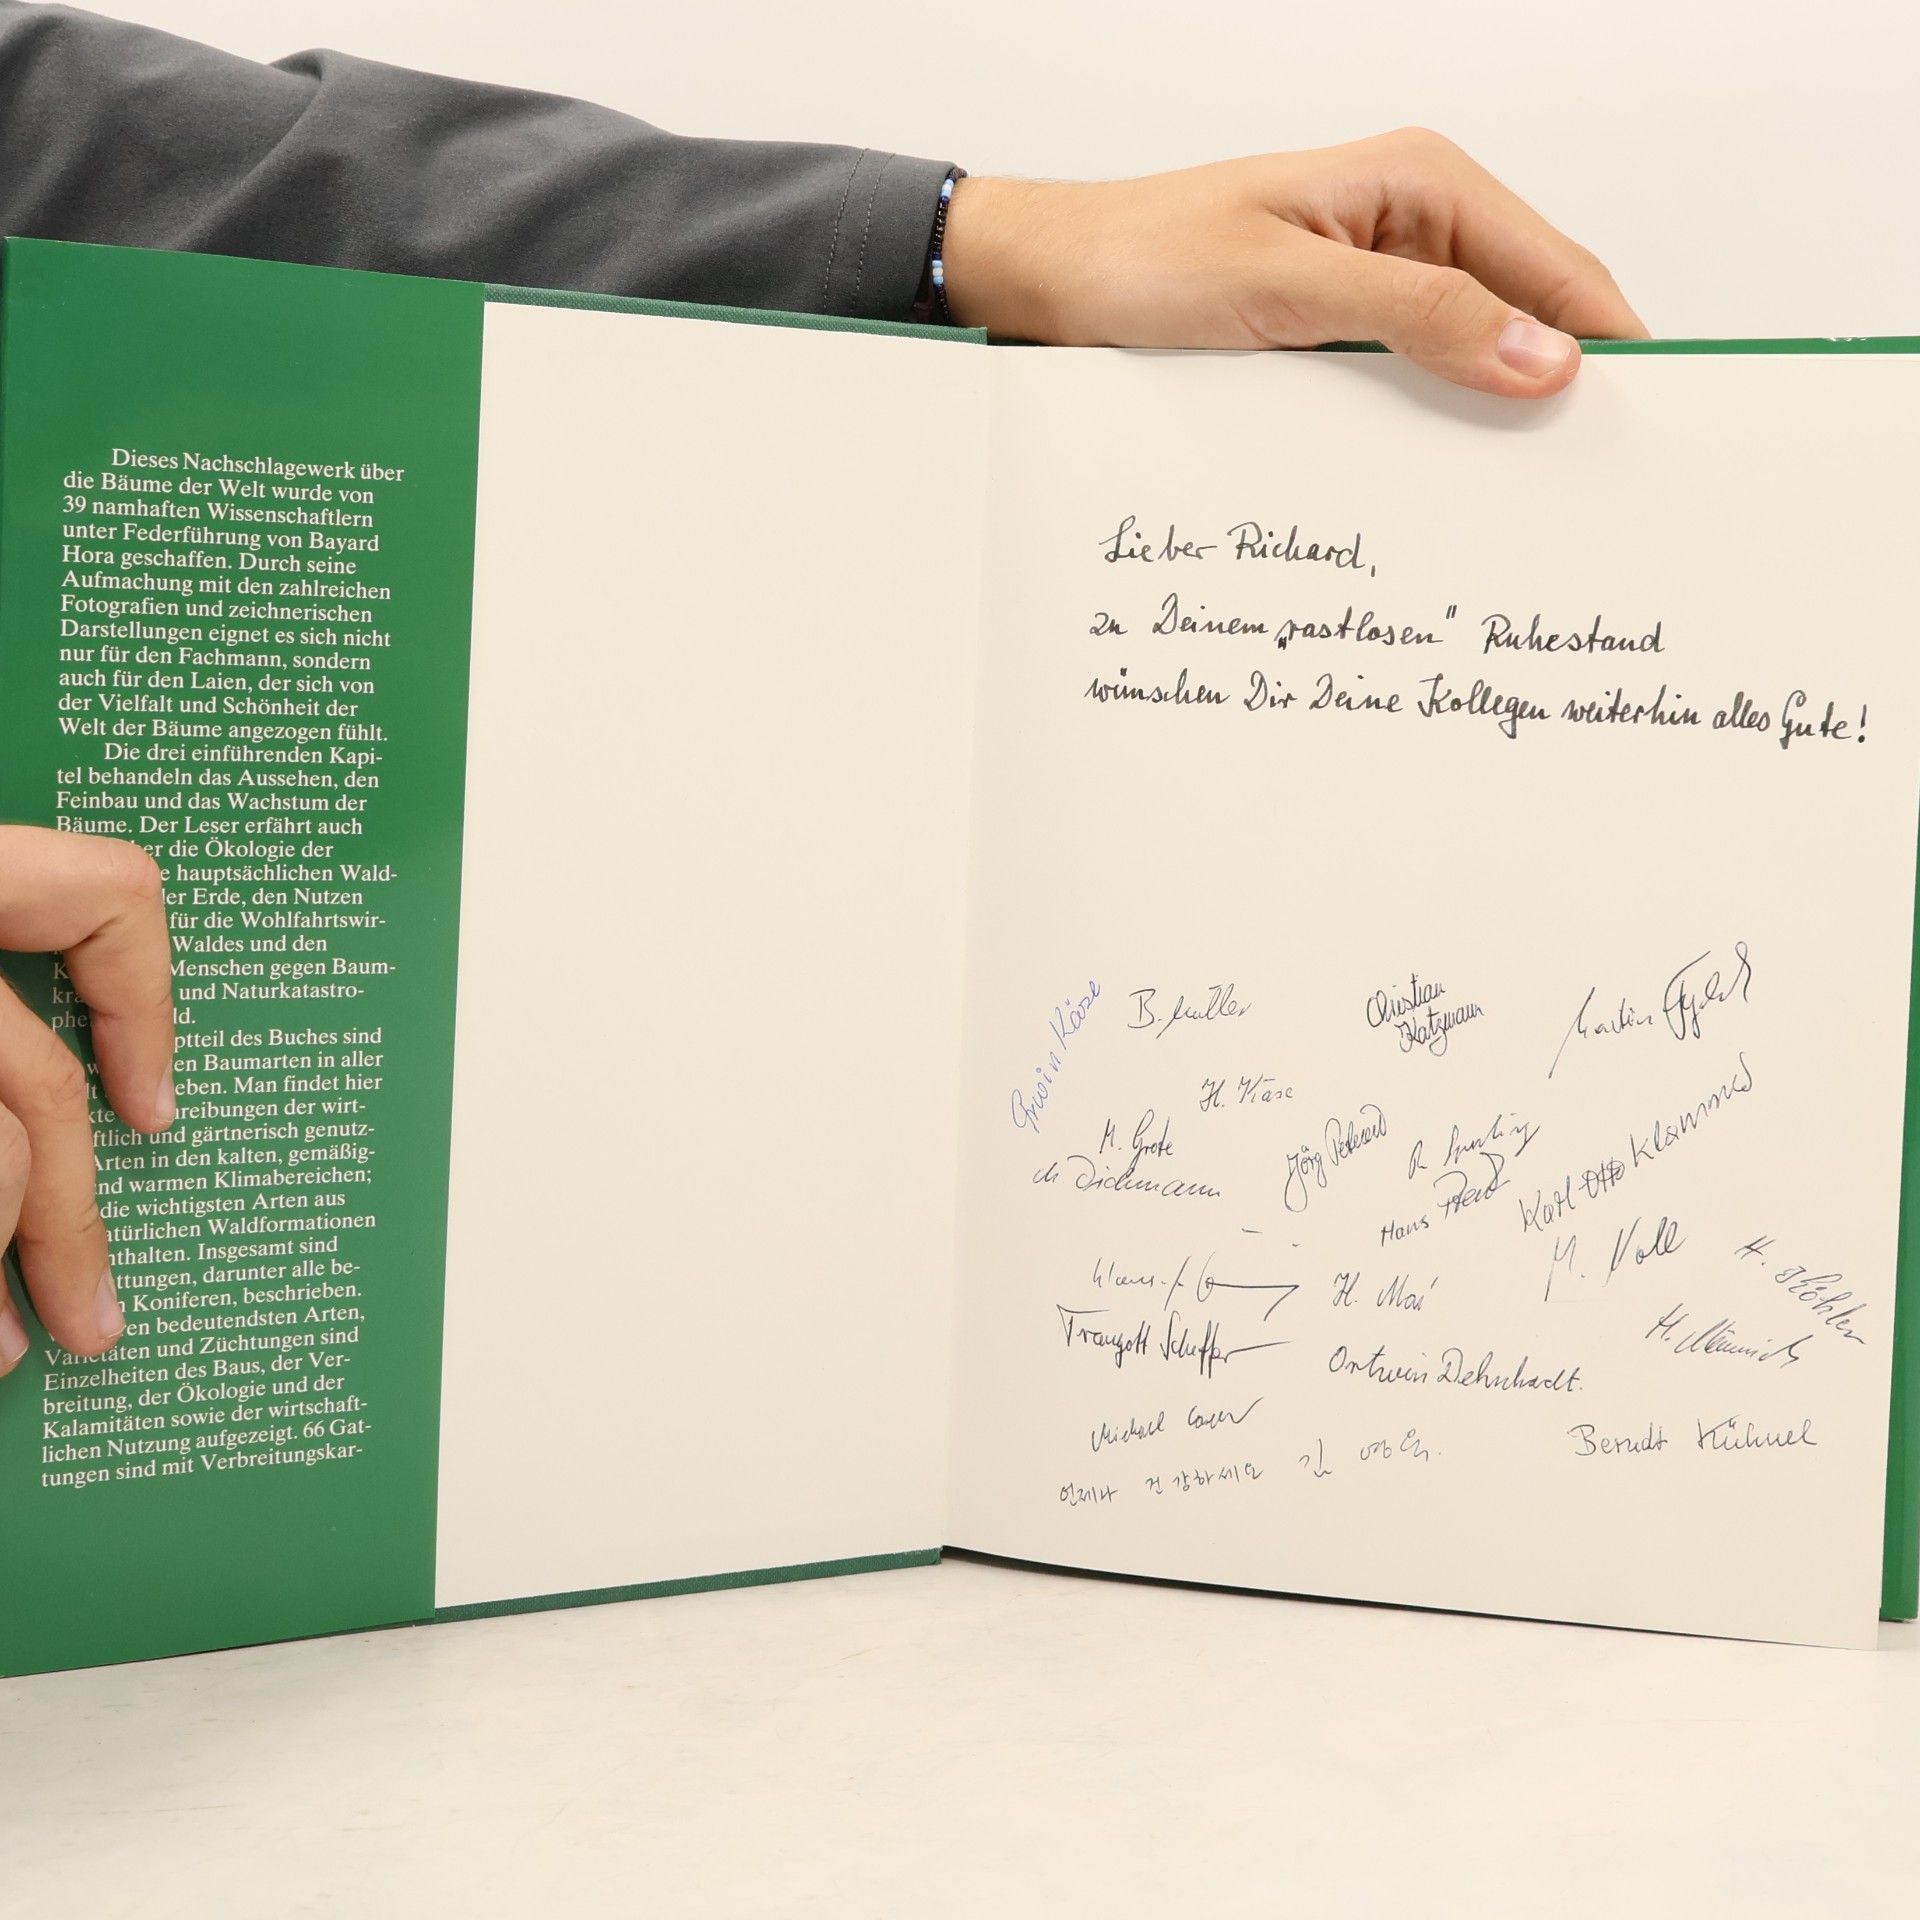 Dieses Nachschlagewerk über
die Bäume der Welt wurde von
39 namhaften Wissenschaftlern
unter Federführung von Bayard
Hora geschaffen. Durch seine
Aufmachung mit den zahlreichen
Fotografien und zeichnerischen
Darstellungen eignet es sich nicht
nur für den Fachmann, sondern
auch für den Laien, der sich von
der Vielfalt und Schönheit der
Welt der Bäume angezogen fühlt.
Die drei einführenden Kapi-
tel behandeln das Aussehen, den
Feinbau und das Wachstum der
Bäume. Der Leser erfährt auch
die Ökologie der
hauptsächlichen Wald-
Erde, den Nutzen
für die Wohlfahrtswir-
Waldes und den
Menschen gegen Baum-
und Naturkatastro-
ptteil des Buches sind
en Baumarten in aller
eben. Man findet hier
hreibungen der wirt-
ftlich und gärtnerisch genutz-
Arten in den kalten, gemäßig-
nd warmen Klimabereichen;
die wichtigsten Arten aus
atürlichen Waldformationen
nthalten. Insgesamt sind
ttungen, darunter alle be-
Koniferen, beschrieben.
ren bedeutendsten Arten,
Varietäten und Züchtungen sind
Einzelheiten des Baus, der Ver-
breitung, der Ökologie und der
Kalamitäten sowie der wirtschaft-
lichen Nutzung aufgezeigt. 66 Gat-
tungen sind mit Verbreitungskar-
Lieber Richard,
zu Deinem „rastlosen" Ruhestand
wünschen Dir Deine Kollegen weiterhin alles Gute!
Erwin Käse
B. Müller
Christian
Katzmann
Martin
H. Käse
M. Grote
Dichmann
Jörg
Hans
Karl-Otto
M. Noll
H. Köhler
H. Mai
Traugott Scheffer
Ortwin Dehnhardt.
Michael
Berndt Kühnel
언제나 건강하세요 김 영